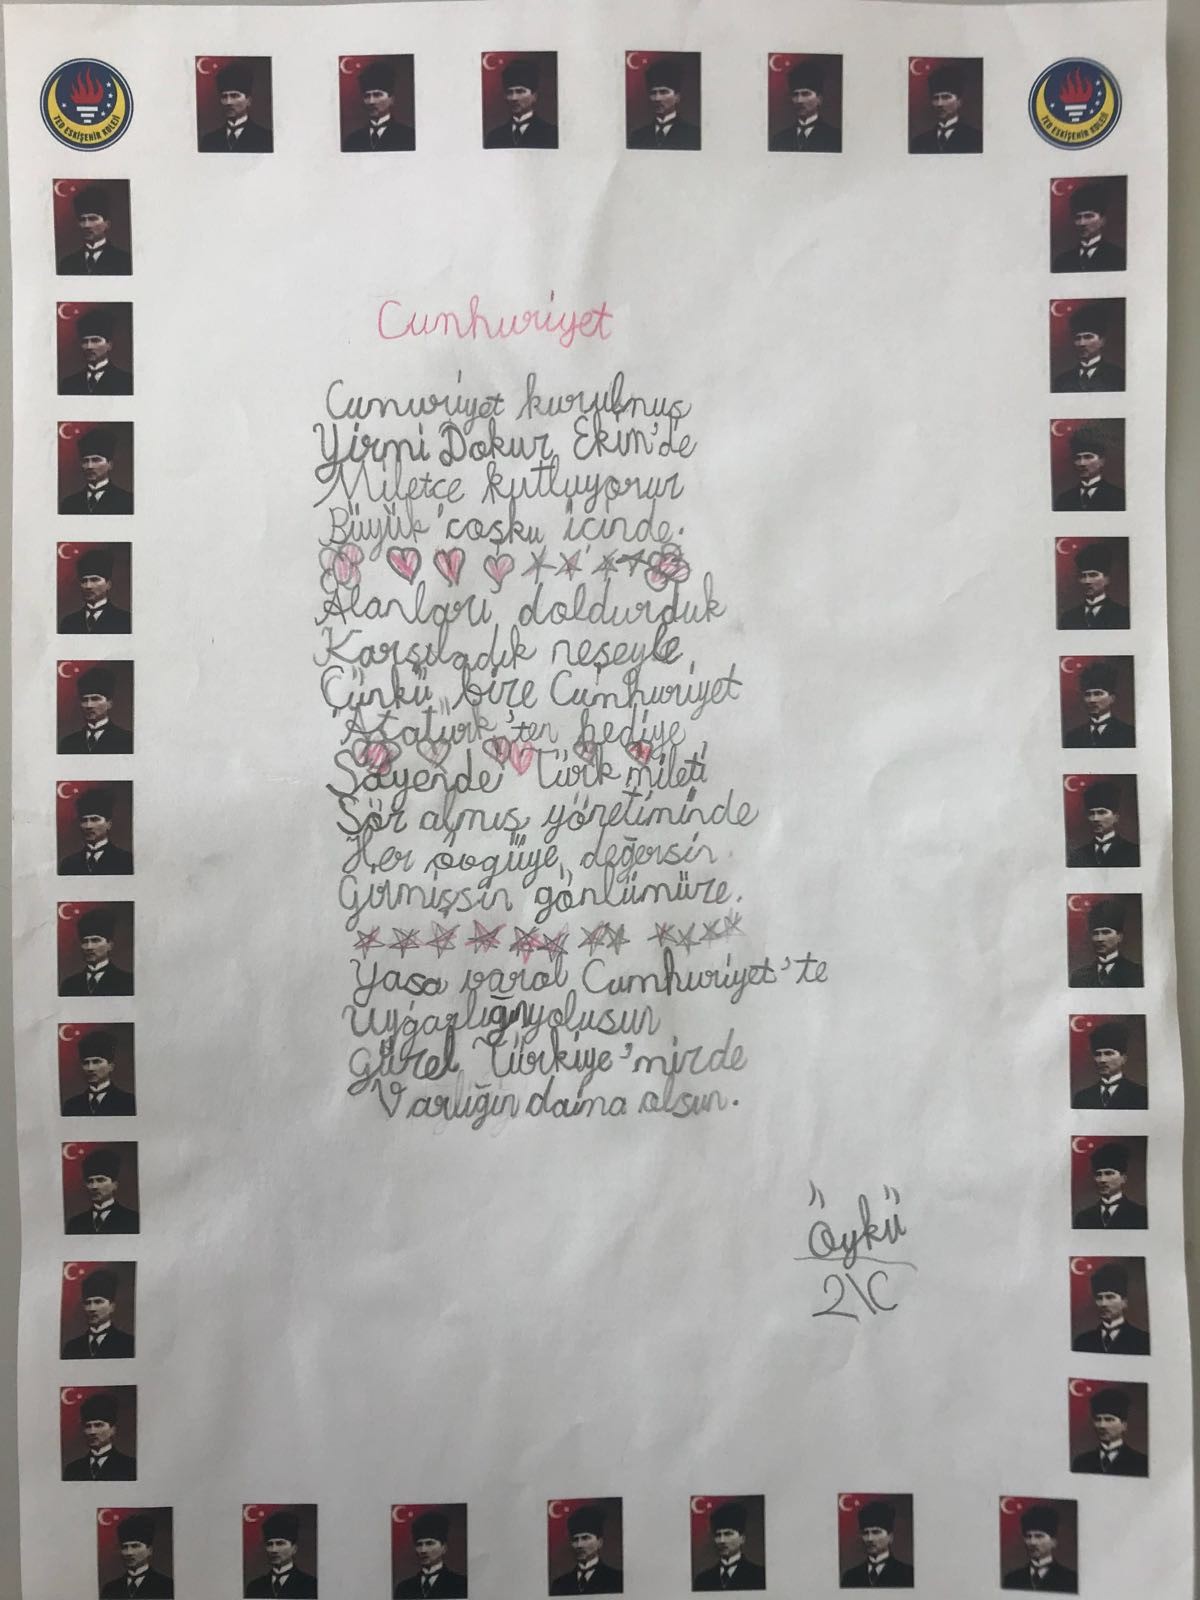 TED ESKİŞEHİR KOLEJİ
TED ESKİŞEHİR KOLEJİ
Cunhuriyet
Cumuriyet kurulmuş
Yirmi Dokuz Ekim'de
Miletçe kutluyoruz
Büyük coşku içinde.
Alanları doldurduk
Karşıladık neşeyle
Çünkü bize Cumhuriyet
Atatürk'ten hediye
Sayende Türk mileti
Söz almış yönetiminde
Her övgüye değersin.
Girmişsin gönlümüze.
Yaşa varol Cumhuriyet'te
Uygarlığınyolusun
Güzel Türkiye'mizde
Varlığın daima olsun.
Öykü
2\C